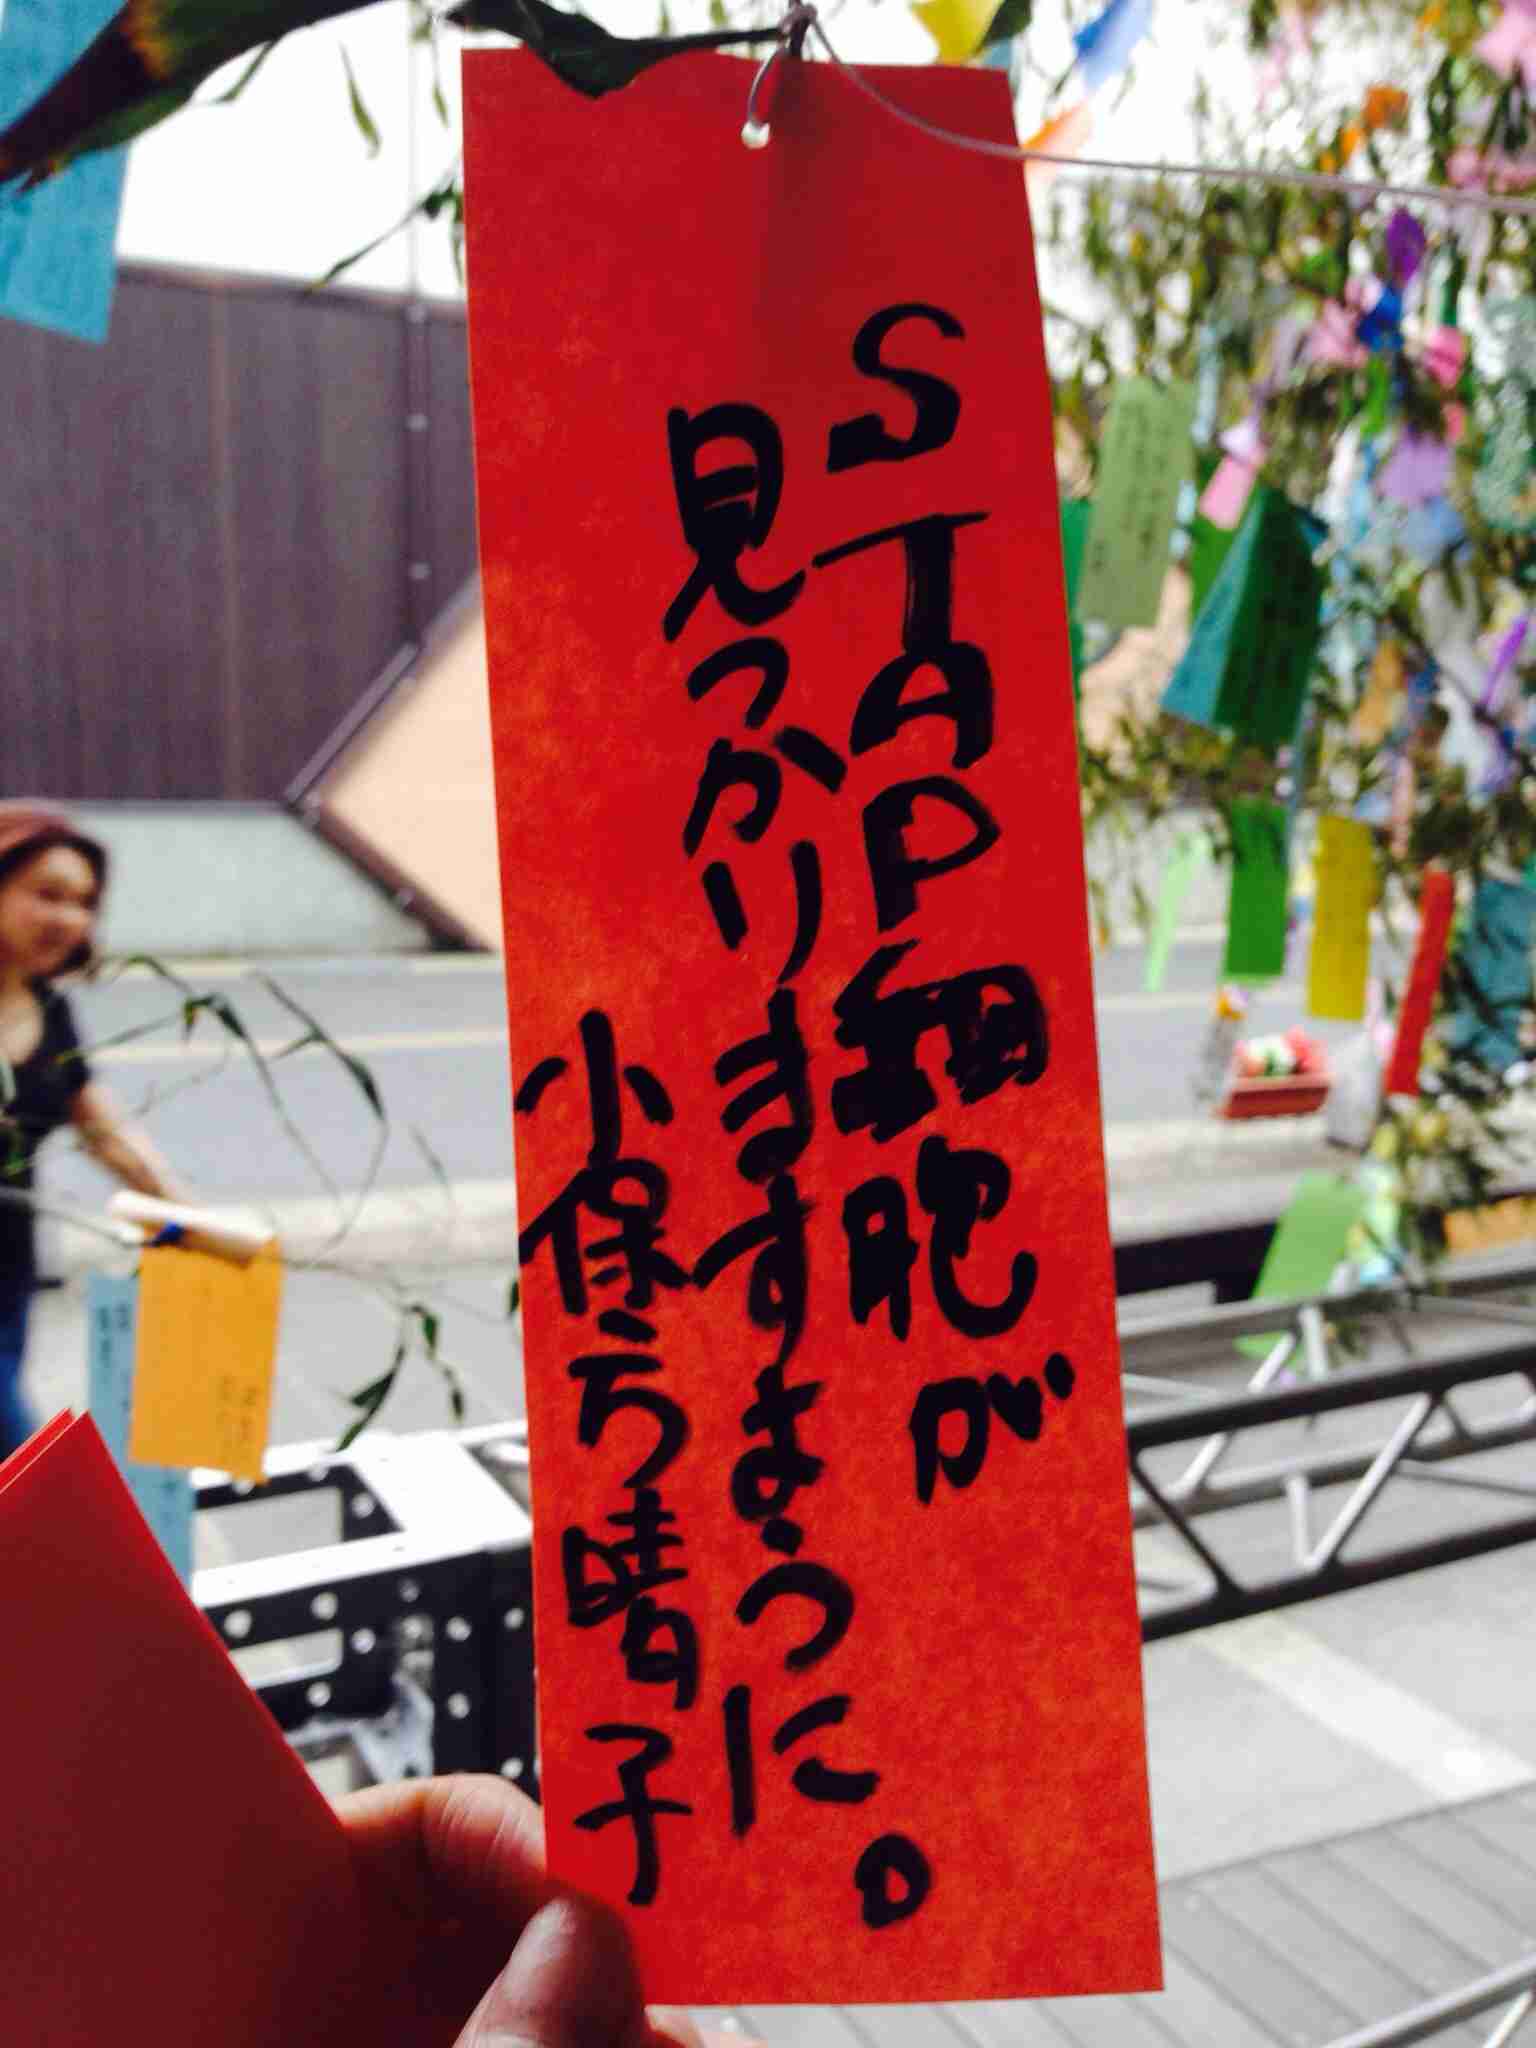 STAP細胞が
見つかりますように。
小保方晴子